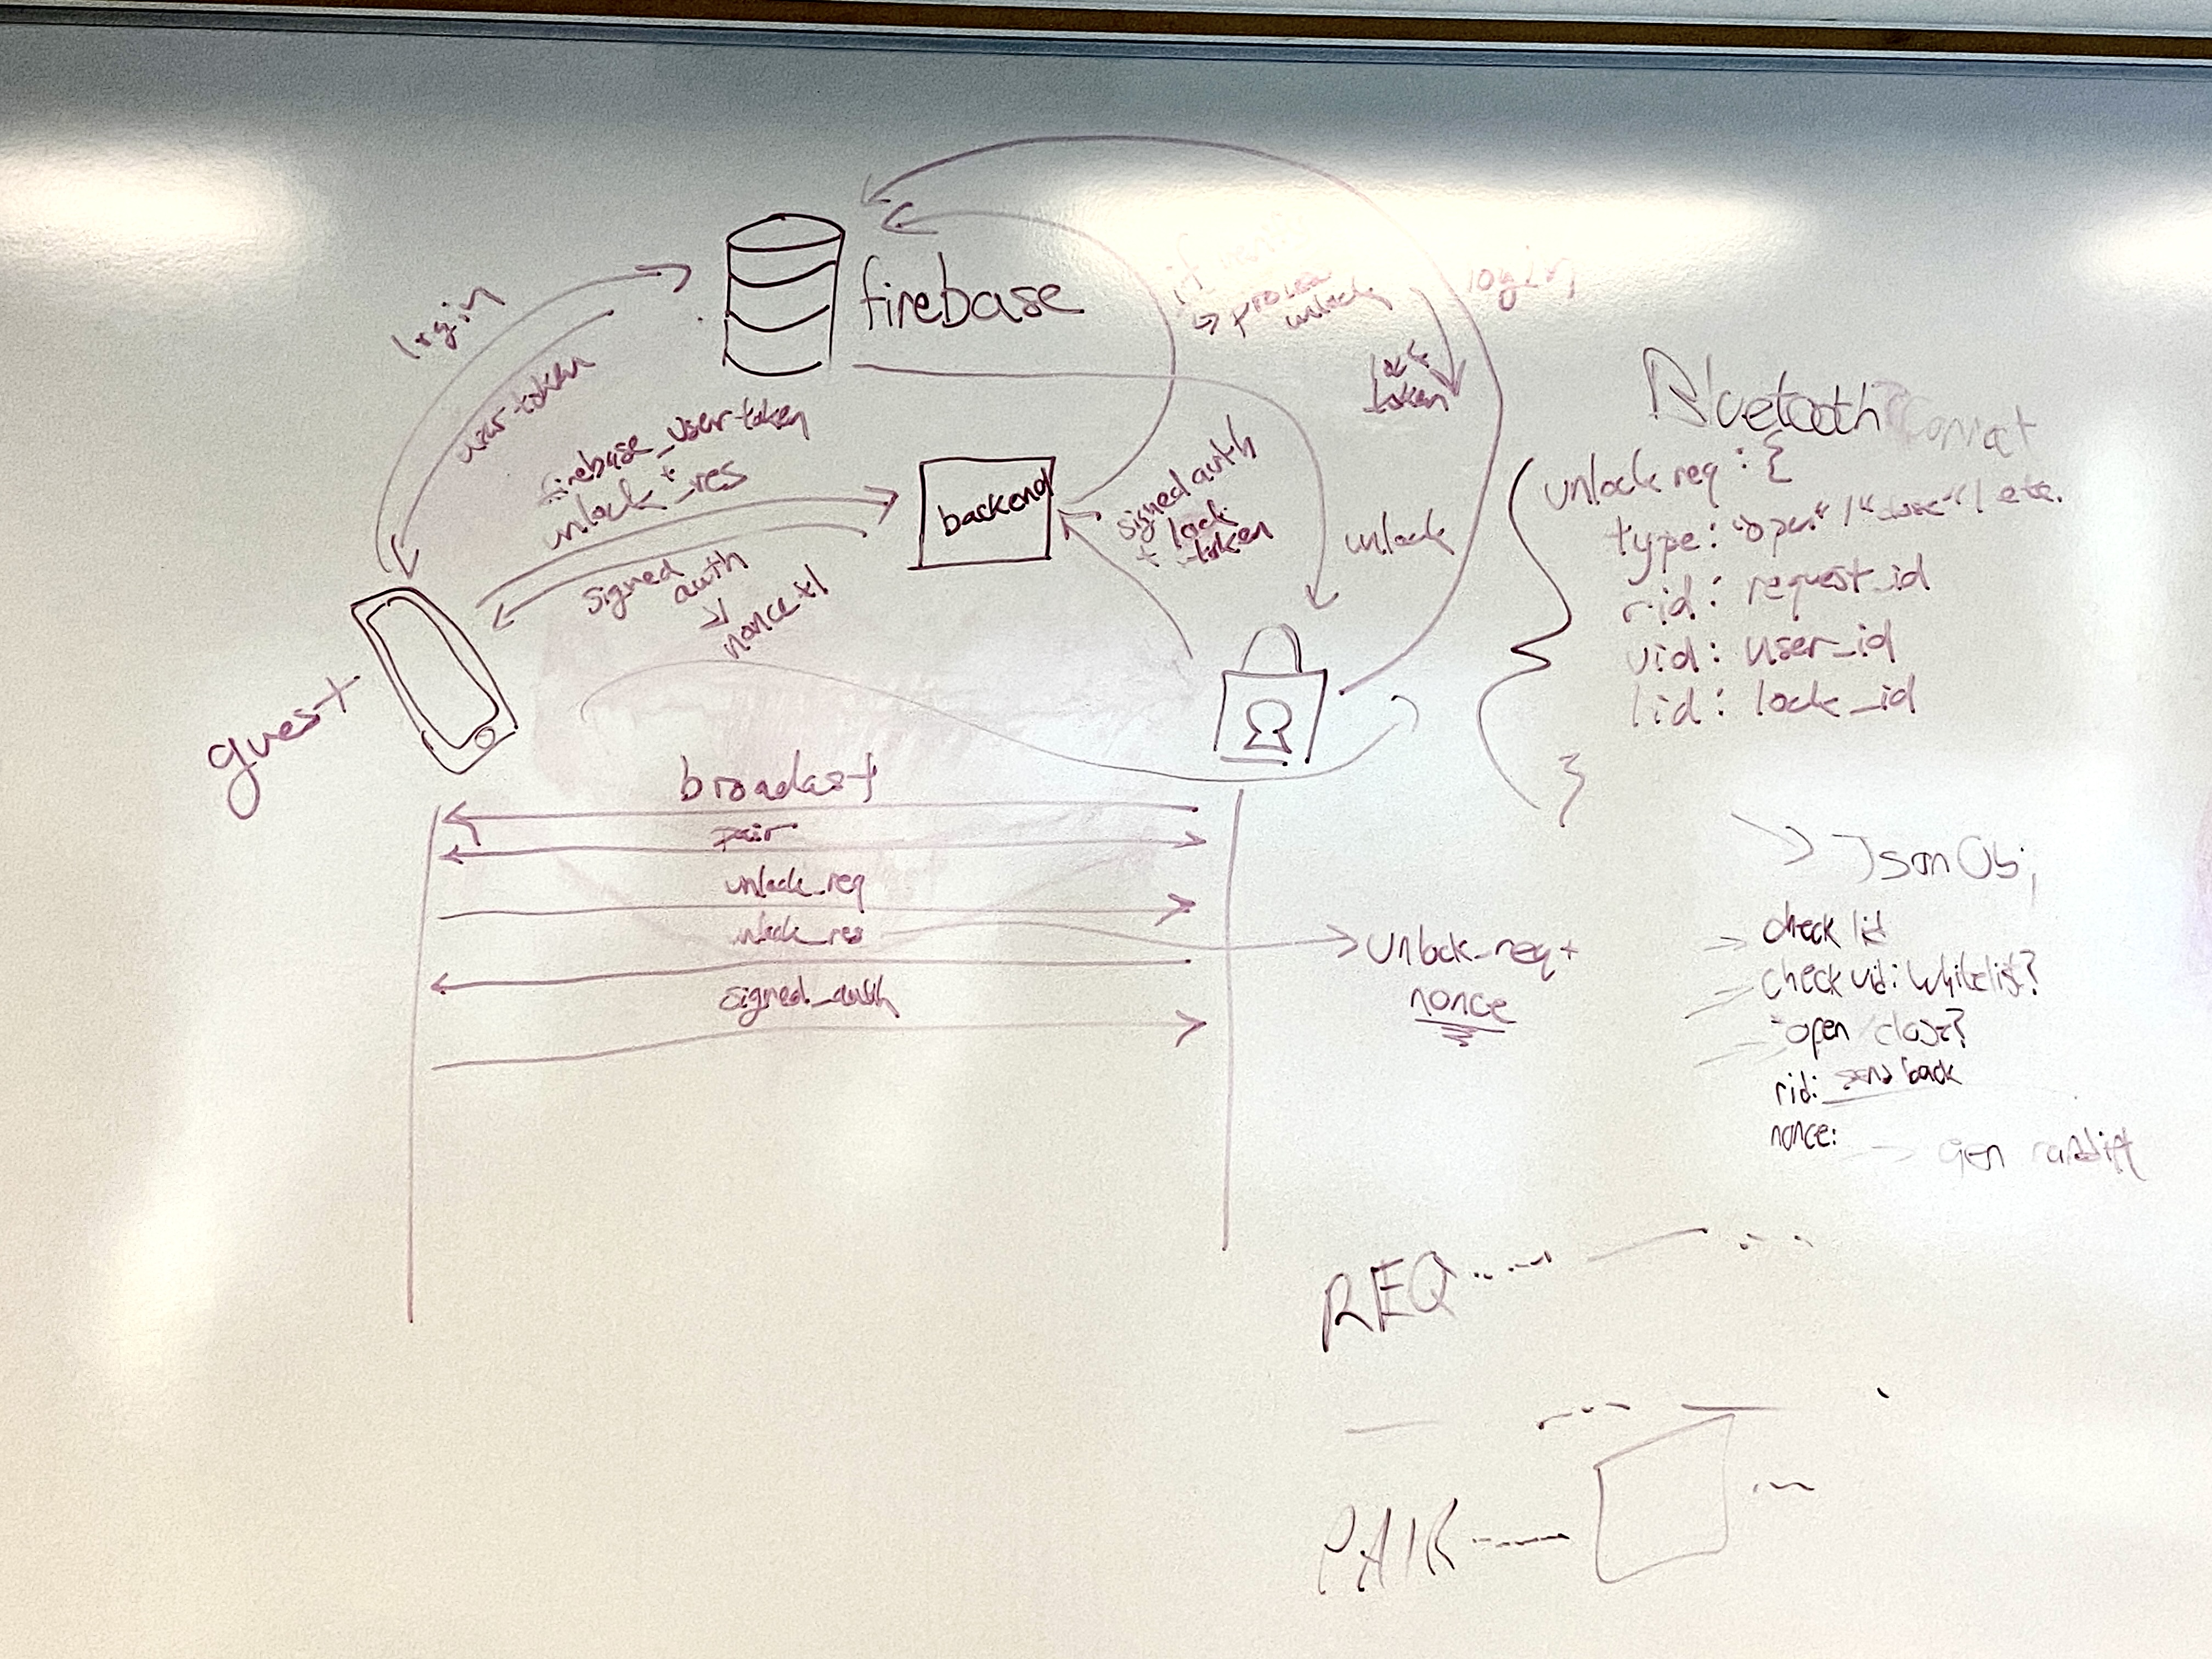 login
firebase
login
user-token
lock
token
firebase_user-token
+
unlock_res
backend
signed auth
+ lock
token
unlock
signed
auth
nonce+1
guest
Bluetooth Connect
unlock req : {
type: "open" / "close" / etc.
rid: request_id
uid: user_id
lid: lock_id
}
broadcast
pair
unlock_req
unlock_res
signed_auth
unlock_req +
nonce
Json Obj
check lid
check uid: whitelist?
open / close?
rid: send back
nonce:
gen
REQ
PAIR